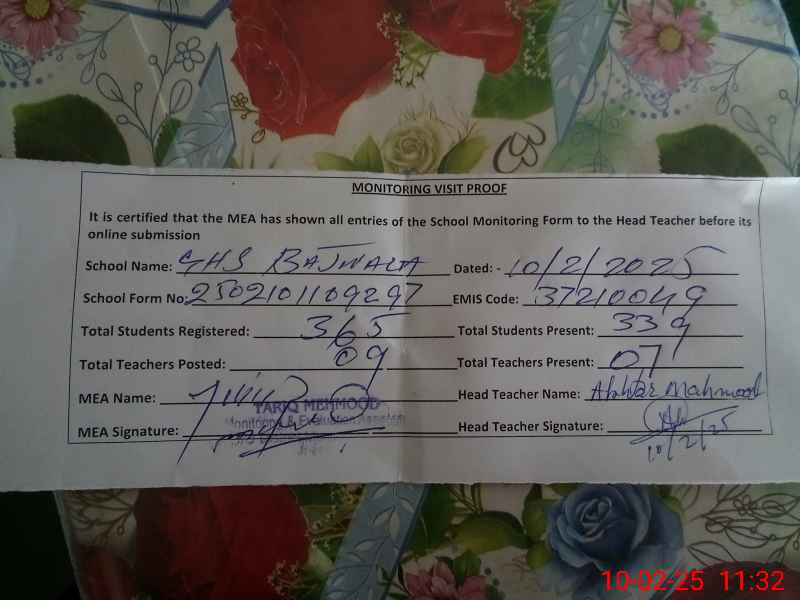 MONITORING VISIT PROOF
It is certified that the MEA has shown all entries of the School Monitoring Form to the Head Teacher before its
online submission
School Name: GHS BAJWALTA Dated: - 10/2/2025
School Form No: 2502101109297 EMIS Code: 37210049
Total Students Registered: 365 Total Students Present: 339
Total Teachers Posted: 09 Total Teachers Present: 07
MEA Name: Head Teacher Name: Akhtar Mahmood
TARIQ MEHMOOD
Monitoring & Evaluation Assistant
MEA Signature: Head Teacher Signature:
10/2/25
10-02-25 11:32